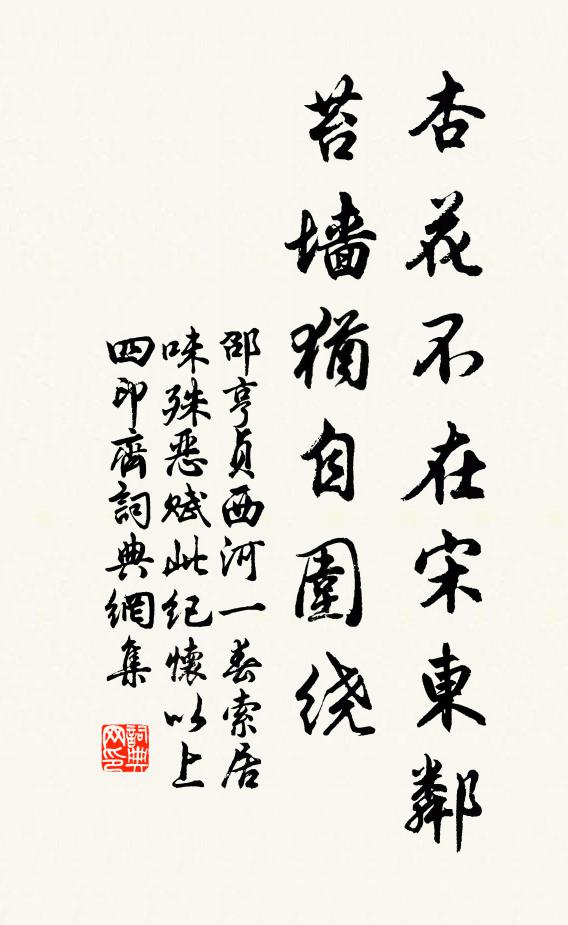 杏花不在宋東鄰
苔墙猶自圍绕
邵亨貞西河一春索居
味殊惡赋此纪懷以上
四印齋詞典網集
詞典网印